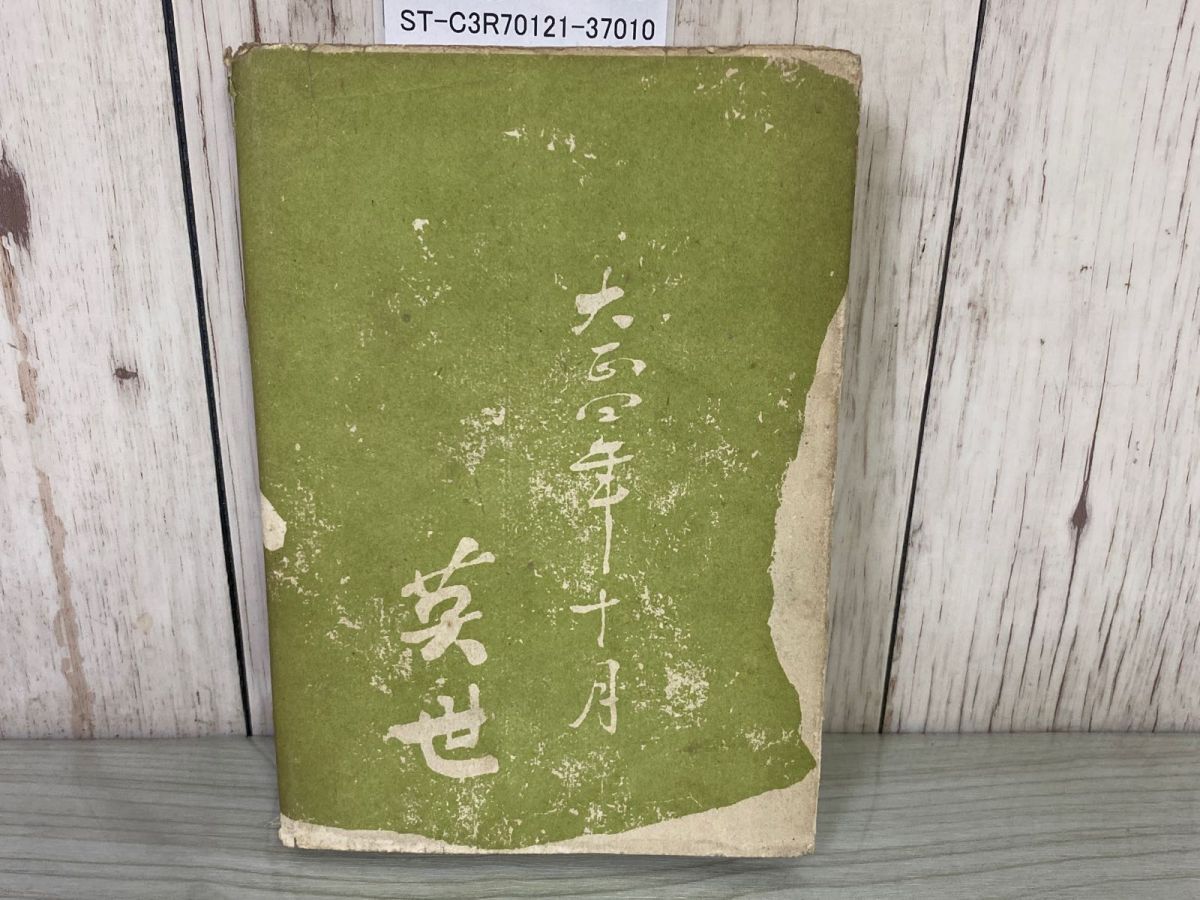 ST-C3R70121-37010
大正四年十月
英世